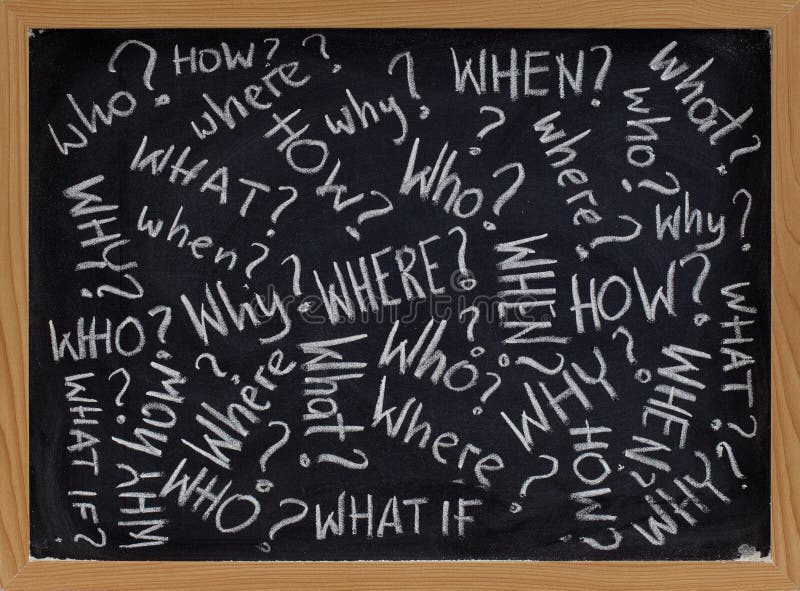 WHO?
HOW?
where?
why?
WHEN?
What?
WHAT?
HOW?
Who?
where?
who?
WHY?
when?
Why?
WHERE?
WHEN?
HOW?
why?
WHO?
Where?
What?
Who?
WHY?
WHEN?
WHAT?
WHAT IF?
HOW?
WHY?
WHO?
Where?
HOW?
WHY?
WHAT IF
?
dreamstime